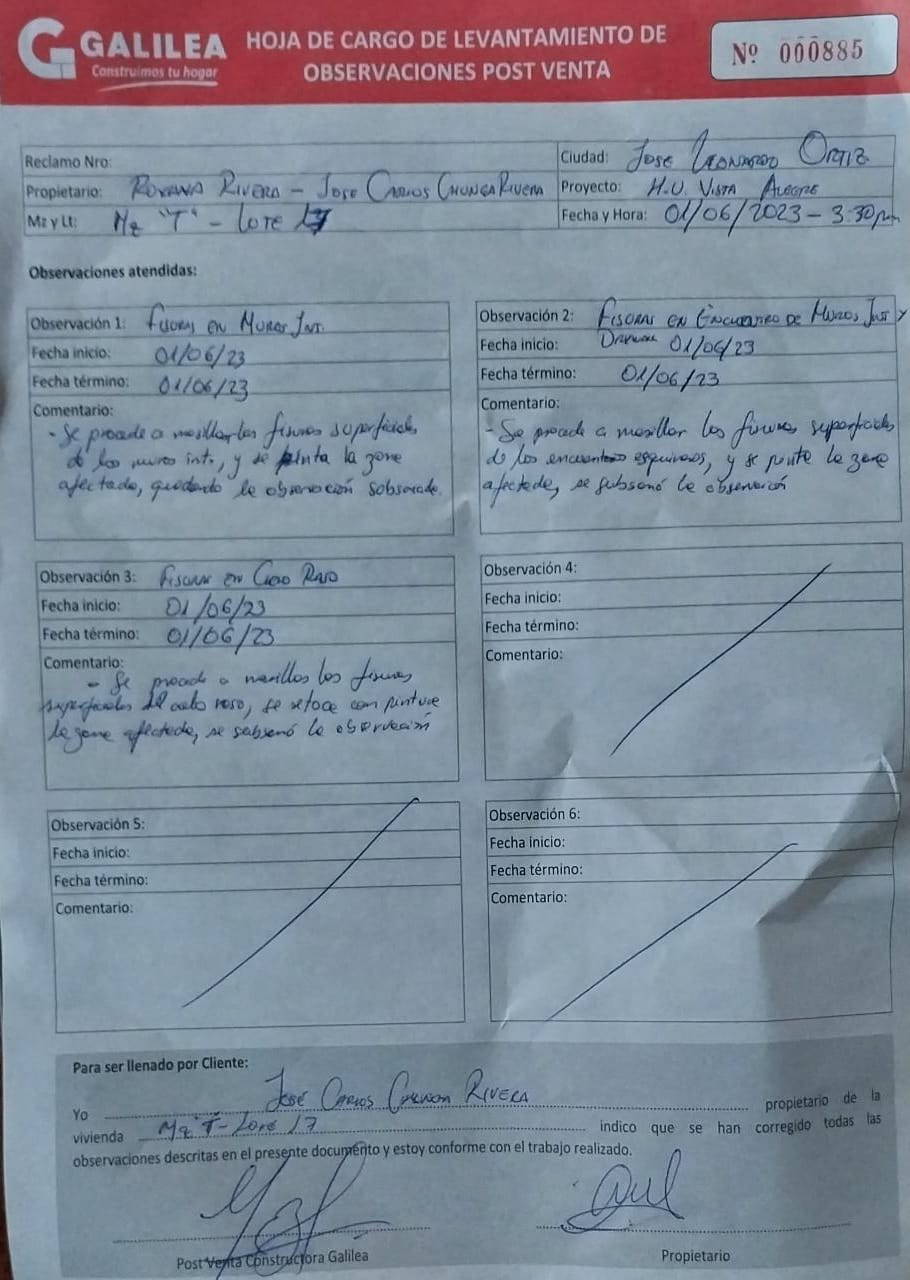 GALILEA
Construimos tu hogar
HOJA DE CARGO DE LEVANTAMIENTO DE
OBSERVACIONES POST VENTA
Nº 000885
Reclamo Nro:
Ciudad: Jose Leonardo Ortiz
Propietario: Roxana Rivera - Jose Carlos Chunga Rivera
Proyecto: H.U. Vista Alegre
Mz y Lt: Mz "T" - Lote 17
Fecha y Hora: 01/06/2023 - 3:30 pm
Observaciones atendidas:
Observación 1: Fisuras en Muros Int.
Fecha inicio: 01/06/23
Fecha término: 01/06/23
Comentario:
- Se procede a masillar las fisuras superficiales
de los muros int., y se pinta la zona
afectada, quedando la observación subsanada.
Observación 2: Fisuras en Encuentro de Muros Int y
Fecha inicio: 01/06/23
Fecha término: 01/06/23
Comentario:
- Se procede a masillar las fisuras superficiales
de los encuentros esquineros, y se pinta la zona
afectada, se subsanó la observación
Observación 3: Fisuras en Cielo Raso
Fecha inicio: 01/06/23
Fecha término: 01/06/23
Comentario:
- Se procede a masillar las fisuras
superficiales del cielo raso, se retoca con pintura
la zona afectada, se subsanó la observación
Observación 4:
Fecha inicio:
Fecha término:
Comentario:
Observación 5:
Fecha inicio:
Fecha término:
Comentario:
Observación 6:
Fecha inicio:
Fecha término:
Comentario:
Para ser llenado por Cliente:
Yo José Carlos Chunga Rivera propietario de la
vivienda Mz T - Lote 17 indico que se han corregido todas las
observaciones descritas en el presente documento y estoy conforme con el trabajo realizado.
Post Venta Constructora Galilea
Propietario